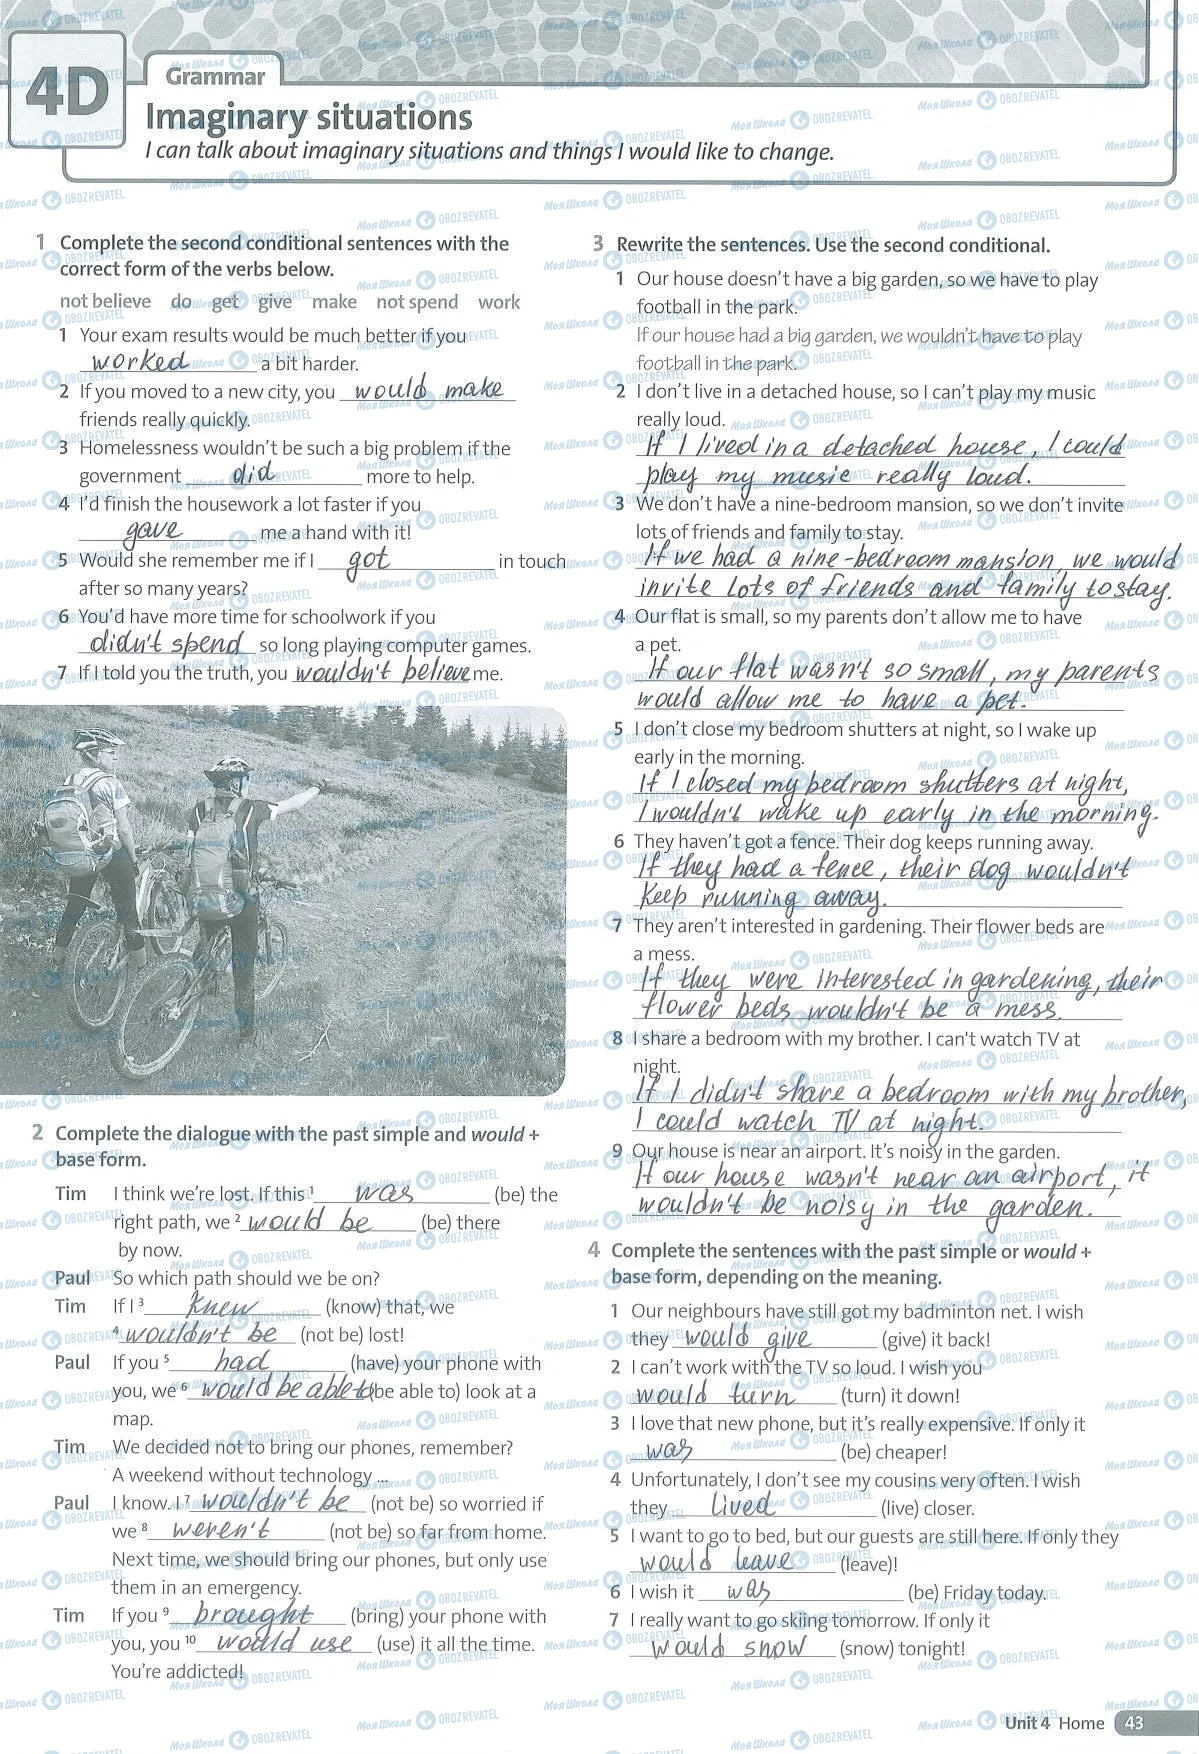 4D
Grammar
Imaginary situations
I can talk about imaginary situations and things I would like to change.
1 Complete the second conditional sentences with the
correct form of the verbs below.
not believe do get give make not spend work
1 Your exam results would be much better if you
worked a bit harder.
2 If you moved to a new city, you would make
friends really quickly.
3 Homelessness wouldn't be such a big problem if the
government did more to help.
4 I'd finish the housework a lot faster if you
gave me a hand with it!
5 Would she remember me if I got in touch
after so many years?
6 You'd have more time for schoolwork if you
didn't spend so long playing computer games.
7 If I told you the truth, you wouldn't believe me.
2 Complete the dialogue with the past simple and would +
base form.
Tim I think we're lost. If this 1 was (be) the
right path, we 2 would be (be) there
by now.
Paul So which path should we be on?
Tim If I 3 knew (know) that, we
4 wouldn't be (not be) lost!
Paul If you 5 had (have) your phone with
you, we 6 would be able to (be able to) look at a
map.
Tim We decided not to bring our phones, remember?
A weekend without technology ...
Paul I know. I 7 wouldn't be (not be) so worried if
we 8 weren't (not be) so far from home.
Next time, we should bring our phones, but only use
them in an emergency.
Tim If you 9 brought (bring) your phone with
you, you 10 would use (use) it all the time.
You're addicted!
3 Rewrite the sentences. Use the second conditional.
1 Our house doesn't have a big garden, so we have to play
football in the park.
If our house had a big garden, we wouldn't have to play
football in the park.
2 I don't live in a detached house, so I can't play my music
really loud.
If I lived in a detached house, I could
play my music really loud.
3 We don't have a nine-bedroom mansion, so we don't invite
lots of friends and family to stay.
If we had a nine-bedroom mansion, we would
invite lots of friends and family to stay.
4 Our flat is small, so my parents don't allow me to have
a pet.
If our flat wasn't so small, my parents
would allow me to have a pet.
5 I don't close my bedroom shutters at night, so I wake up
early in the morning.
If I closed my bedroom shutters at night,
I wouldn't wake up early in the morning.
6 They haven't got a fence. Their dog keeps running away.
If they had a fence, their dog wouldn't
keep running away.
7 They aren't interested in gardening. Their flower beds are
a mess.
If they were interested in gardening, their
flower beds wouldn't be a mess.
8 I share a bedroom with my brother. I can't watch TV at
night.
If I didn't share a bedroom with my brother,
I could watch TV at night.
9 Our house is near an airport. It's noisy in the garden.
If our house wasn't near an airport, it
wouldn't be noisy in the garden.
4 Complete the sentences with the past simple or would +
base form, depending on the meaning.
1 Our neighbours have still got my badminton net. I wish
they would give (give) it back!
2 I can't work with the TV so loud. I wish you
would turn (turn) it down!
3 I love that new phone, but it's really expensive. If only it
was (be) cheaper!
4 Unfortunately, I don't see my cousins very often. I wish
they lived (live) closer.
5 I want to go to bed, but our guests are still here. If only they
would leave (leave)!
6 I wish it was (be) Friday today.
7 I really want to go skiing tomorrow. If only it
would snow (snow) tonight!
Unit 4 Home 43
Моя Школа OBOZREVATEL